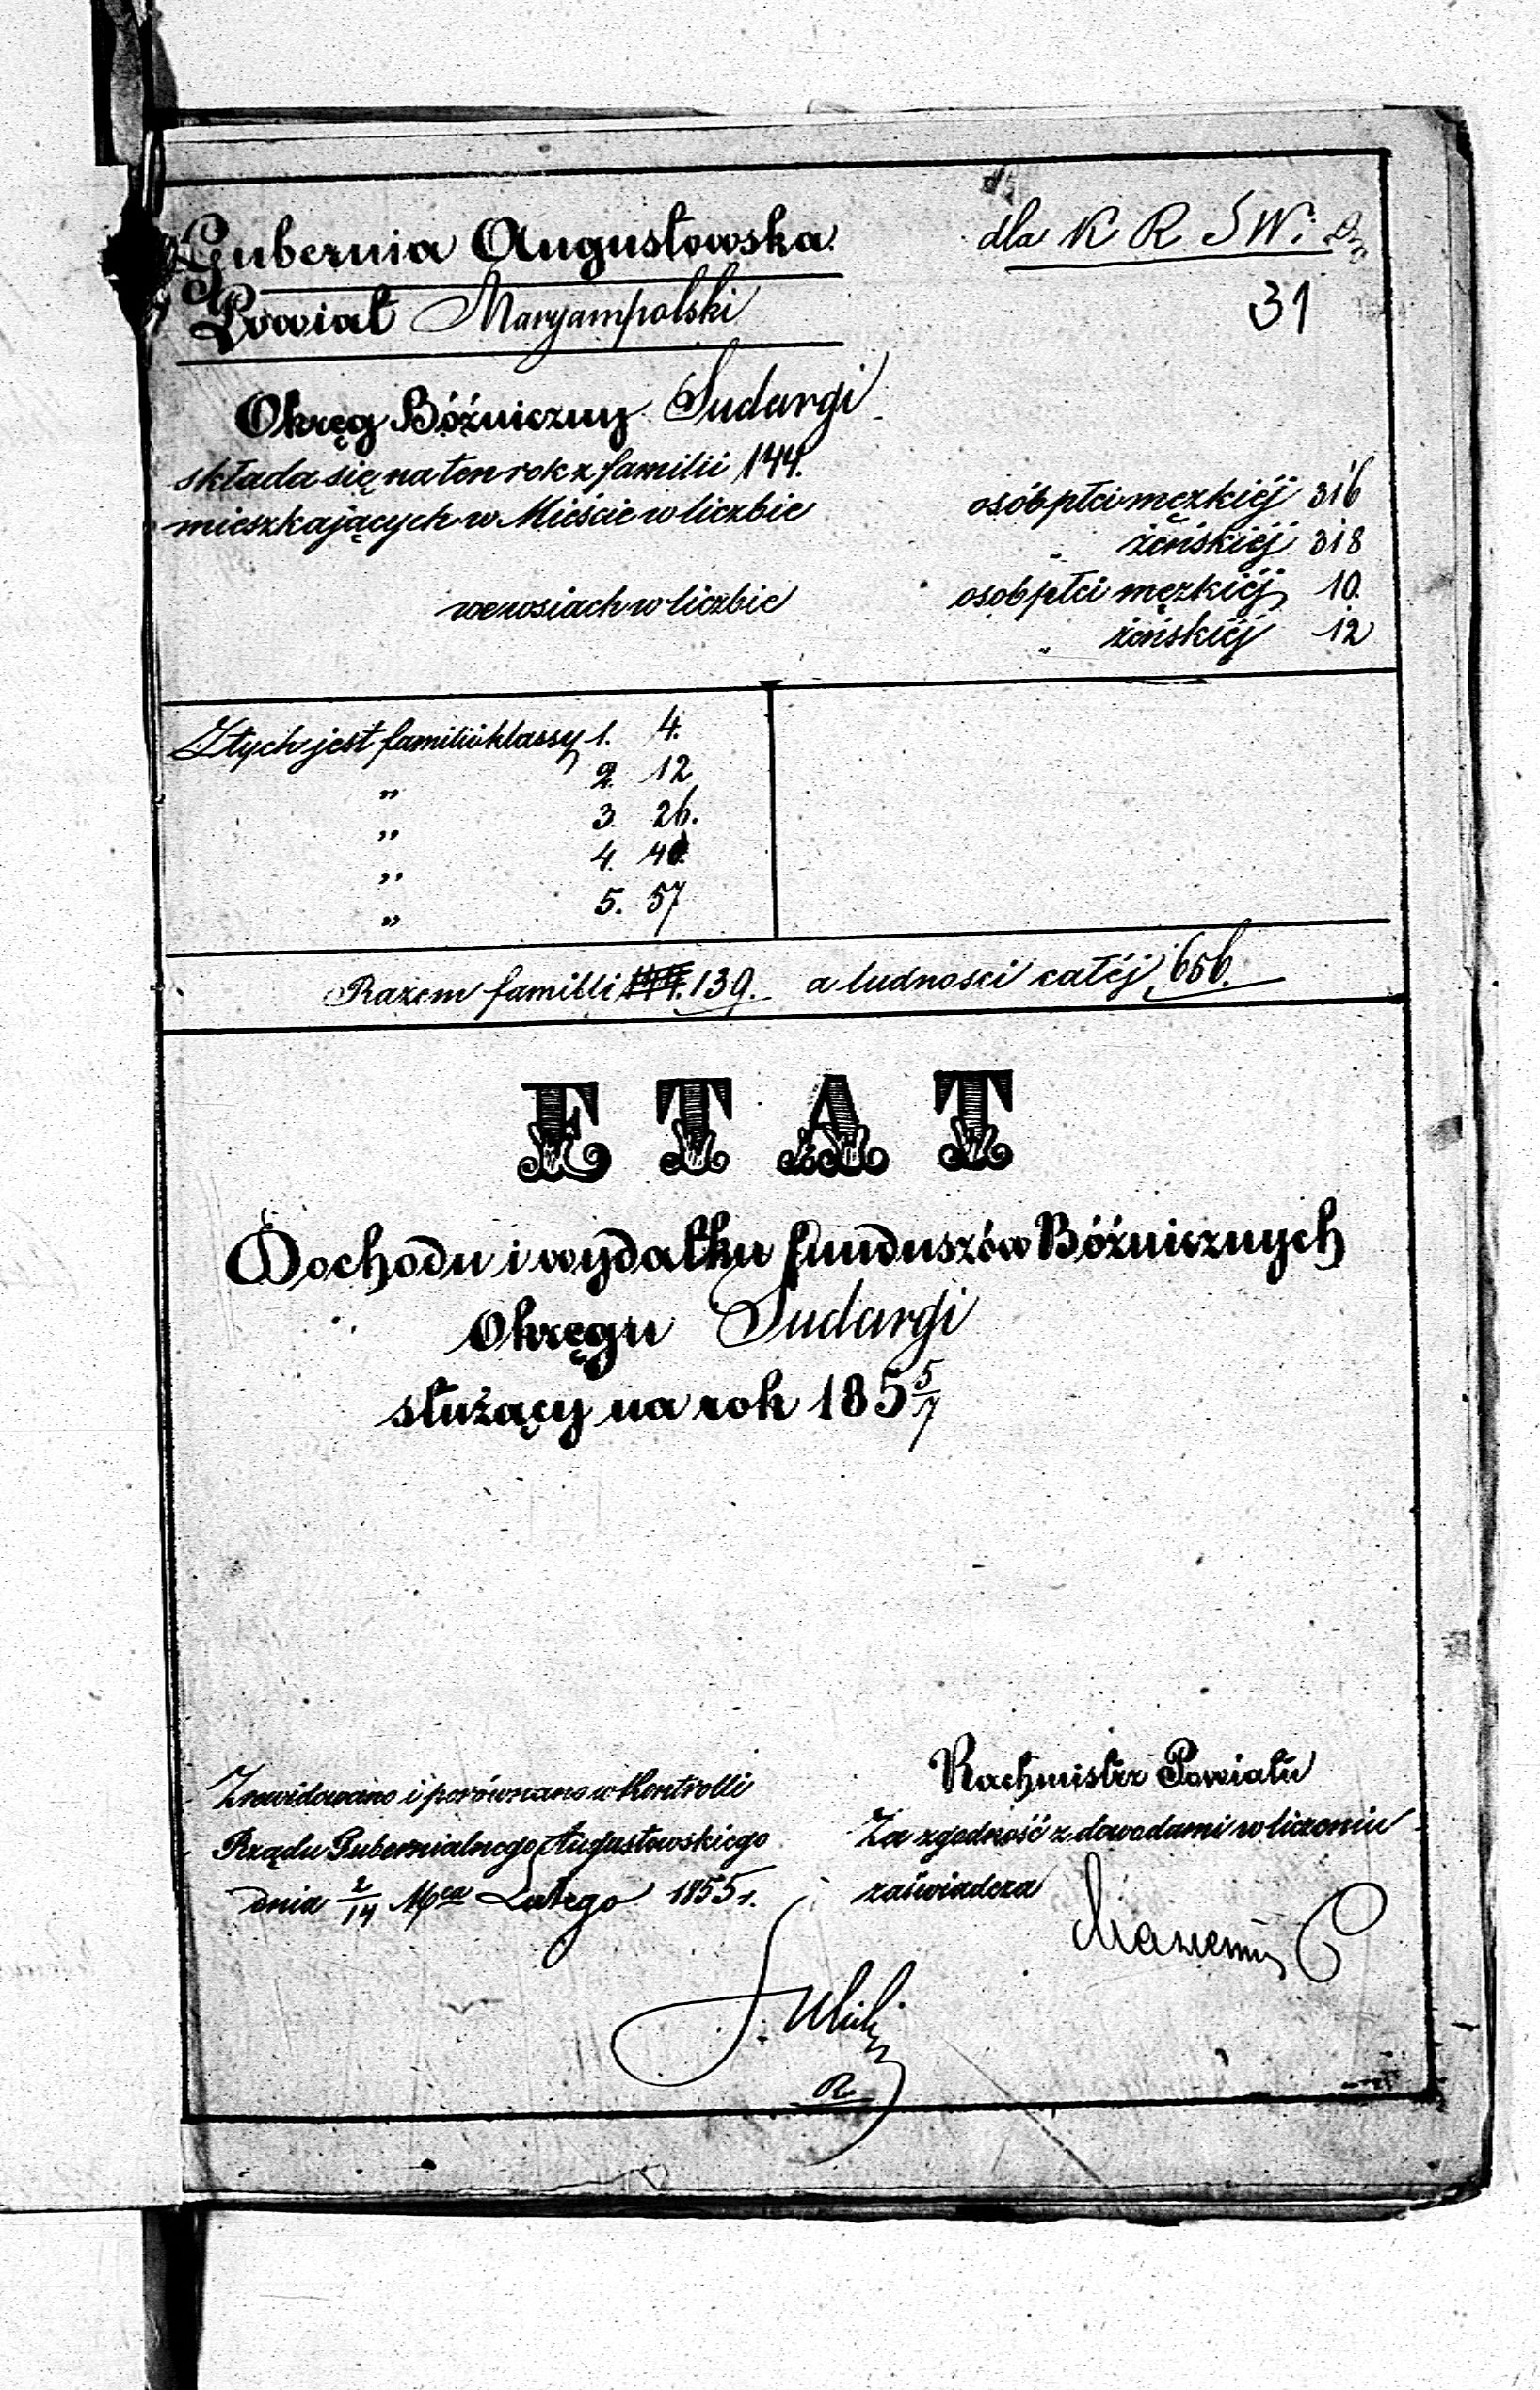 Gubernia Augustowska.
dla K R S W: D
31
Powiat Maryampolski
Okręg Bóźniczny Sudargi
składa się na ten rok z familii 144.
mieszkających w Mieście w liczbie osób płci męzkiéj 316
" żeńskiéj 318
we wsiach w liczbie osob płci męzkiéj 10.
" żeńskiéj 12
Z tych jest familii klassy 1. 4.
" 2. 12
" 3. 26.
" 4. 40.
" 5. 57
Razem familii 144. 139. a ludności całéj 656.
ETAT
Dochodu i wydatku funduszów Bóźnicznych
Okręgu Sudargi
służący na rok 185 5/7
Rachmistrz Powiatu
Za zgodność z dowodami w liczeniu
zaświadcza
Zrewidowano i porównano w Kontrolli
Rządu Gubernialnego Augustowskiego
dnia 2/14 Mca Lutego 1855 r.
R